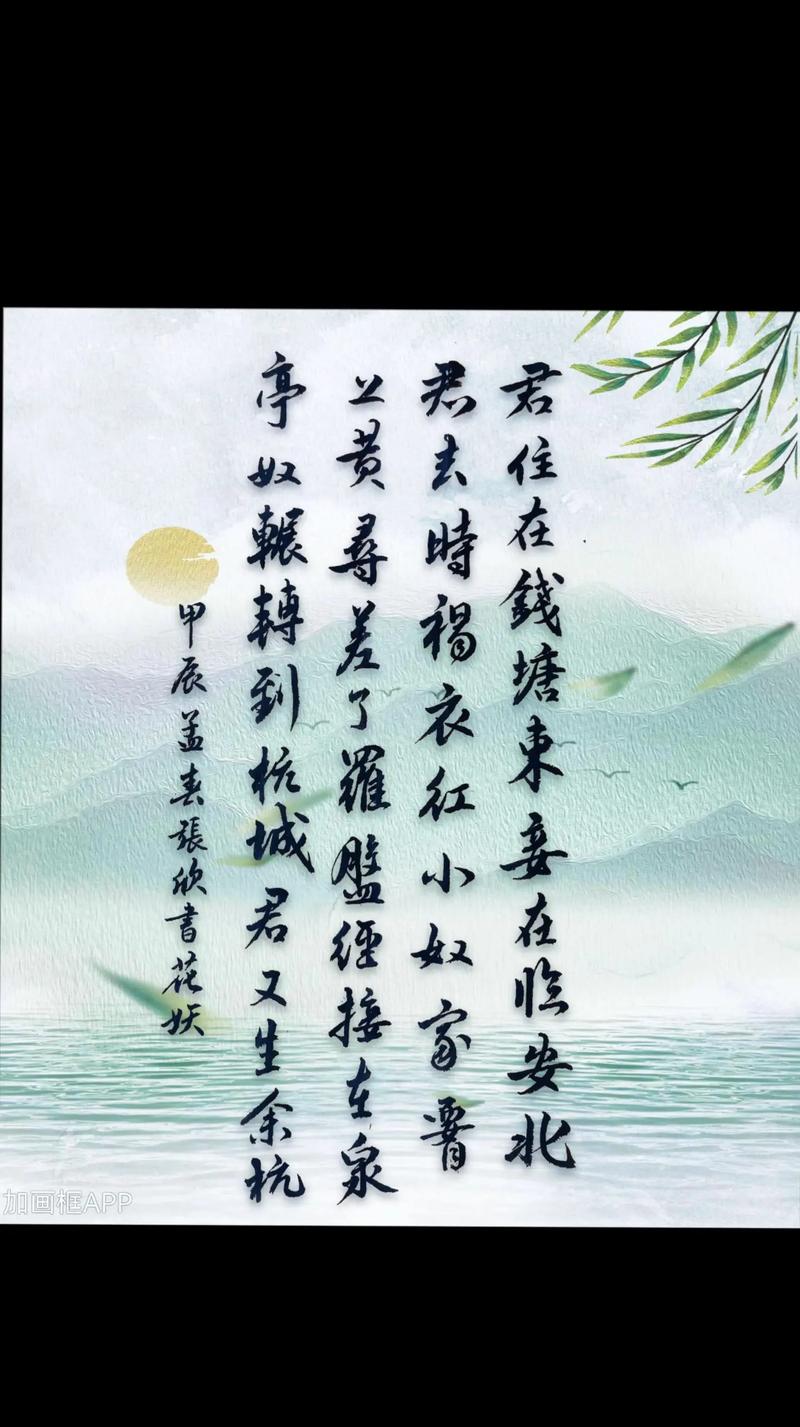 君住在錢塘東妾在臨安北
君去時褐衣红小奴家腰
上黄尋差了羅盤經接在泉
亭奴輾轉到杭城君又生余杭
甲辰孟春張欣書花妖
加画框APP